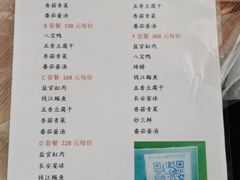 香菇青菜
番茄蛋汤
B 套餐 108 元每份
八宝鸭
五香豆腐干
香菇青菜
番茄蛋汤
C 套餐 168 元每份
盐官缸肉
钱江鳊鱼
五香豆腐干
香菇青菜
番茄蛋汤
D 套餐 228 元每份
盐官缸肉
长安宴球
钱江鳊鱼
香菇青菜
五香豆腐干
香菇青菜
番茄蛋汤
F 套餐 368 元每份
八宝鸭
蹄膀
钱江鳊鱼
盐官缸肉
五香豆腐干
长安宴球
香菇青菜
炒三鲜
番茄蛋汤